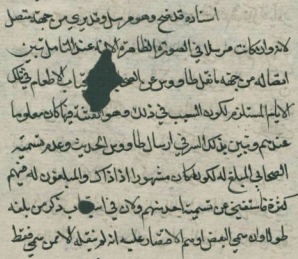 اسناده قد صح وهو مرسل وقد يرى من جهة متصل
لانه وان كانت مرسلا في الصورة الظاهرة الا عند التامل تبين
اتصاله من جهة ما نقل طاووس عن الصحابة الاطعام في تلك
الايام المستلزم لكون السبب في ذلك وهو الفتنة فيها كان معلوما
عندهم وتبين بذلك السر في ارسال طاووس الحديث وعدم تسمية
الصحابي المبلغ له لكونه كان مشهورا اذ ذاك والمبلغون له فيهم
كثرة فاستغنى عن تسمية احد منهم ولان في استيعاب ذكر من بلغه
طولا وان سمى البعض اوهم الاقتصار عليه انه لم ينقله الا من سمى فقط